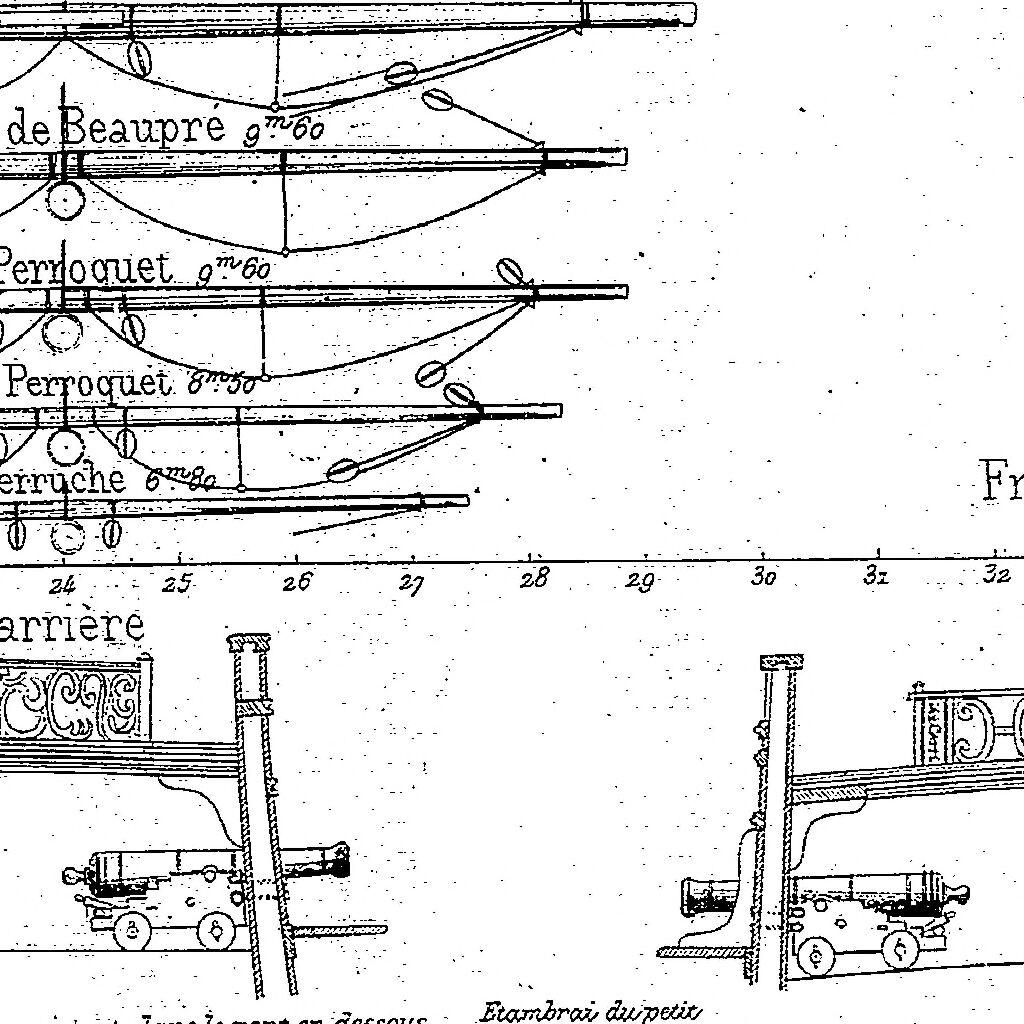 de Beaupré 9ᵐ60
Perroquet 9ᵐ60
Perroquet 8ᵐ50
erruche 6ᵐ80
Fr
24 25 26 27 28 29 30 31 32
arrière
en dessous
Etambrai du petit